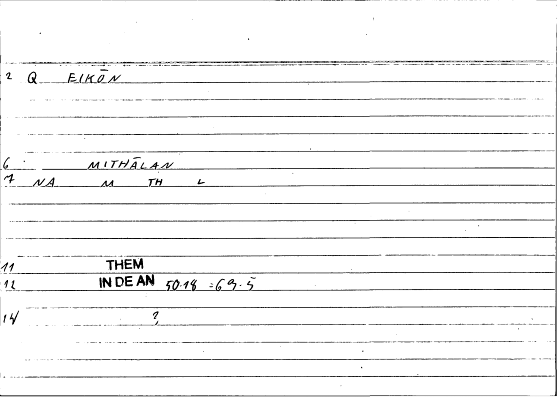 2 Q EIKŌN
6 MITHĀLAN
7 NA M TH L
11 THEM
12 IN DE AN 50.18 = 69.5
14 ?